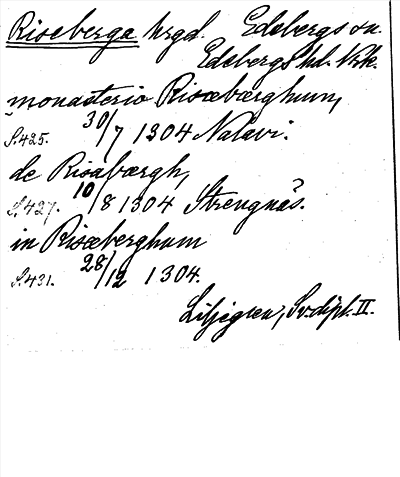 Riseberga hrgd. Edsbergs sn.
Edsbergs hd. Nrke.
monasterio Risæbærghum,
S.425. 30/7 1304 Nalavi.
de Risabærgh,
S.427. 10/8 1304 Strengnäs.
in Risæberghum
S.431. 28/12 1304.
Liljegren, Sv. dipl. II.